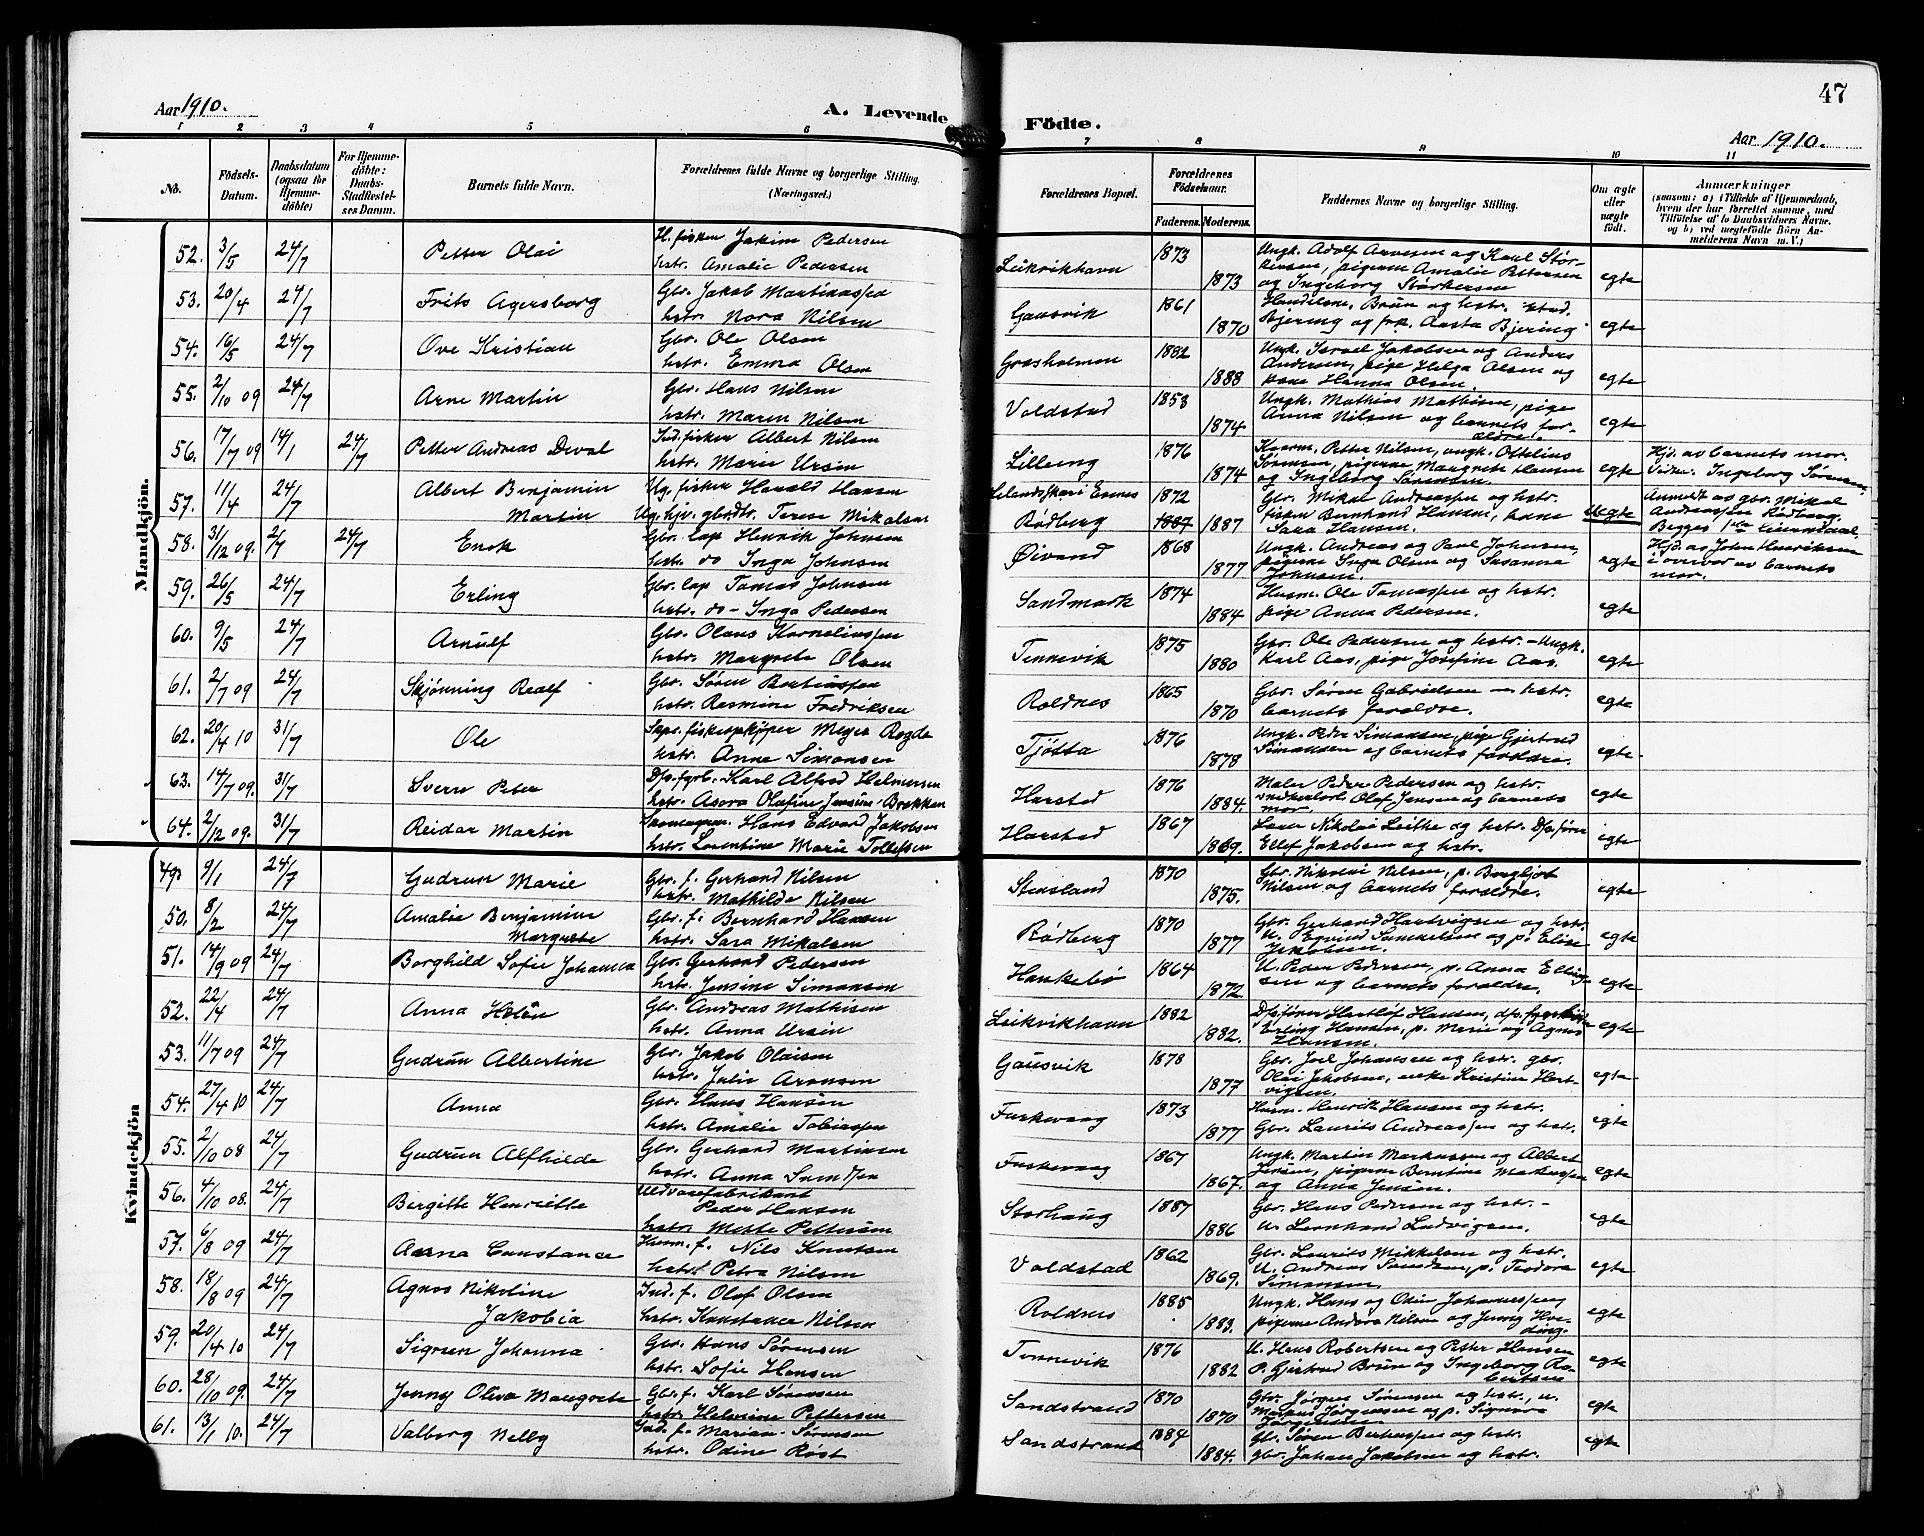 47
Aar 1910.
A. Levende
Födte.
Aar 1910.
1 2 3 4 5 6
7 8 9 10 11
No.
Födsels-
Datum.
Daabsdatum
(ogsaa for
Hjemme-
döbte)
For Hjemme-
döbte:
Daabs-
Stadfæstel-
ses Datum.
Barnets fulde Navn.
Forældrenes fulde Navne og borgerlige Stilling.
(Næringsvei.)
Forældrenes Bopæl.
Forældrenes
Födselsaar.
Faderens. Moderens.
Faddernes Navne og borgerlige Stilling.
Om ægte
eller
uægte
födt.
Anmærkninger
(saasom: a) i Tilfælde af Hjemmedaab,
hvem der har forrettet samme, med
Tilföielse af to Daabsvidners Navne,
og b) ved uægtefödte Börn An-
melderens Navn m. V.)
Mandkjön.
52. 3/5 24/7 Petter Olai H. fisker Jakim Pedersen
hstr. Amalie Pedersen
Leikvikhavn 1873 1873 Ungk. Adolf Arnesen og Karl Stör-
kersen, pigerne Amalie Pettersen
og Ingeborg Størkersen egte
53. 20/4 24/7 Frits Agersborg Gbr. Jakob Martinussen
hstr. Nora Nilsen
Gausvik 1861 1870 Handelsm. Brün og hstr. stud.
Bjering og frk. Aasta Bjering egte
54. 16/5 24/7 Ove Kristian Gbr. Ole Olsen
hstr. Emma Olsen
Grasholmen 1882 1888 Ungk. Israel Jakobsen og Anders
Andersen, pige Helga Olsen og
kone Hanna Olsen. egte
55. 2/10 09 24/7 Arne Martin Gbr. Hans Nilsen
hstr. Maren Nilsen
Voldstad 1858 1874 Ungk. Mathias Mathisen, pige
Anna Nilsen og barnets for-
ældre. egte
56. 17/7 09 14/1 24/7 Petter Andreas Deval Ind. fisker Albert Nilsen
hstr. Marie Ursin
Lilleng 1876 1874 Petter Nilsen, ungk. Ottelius
Sørensen, pigerne Margrete Hansen
og Ingeborg Sørensen. egte Hjd. av barnets mor.
Ingeborg Sørensen.
57. 11/4 24/7 Albert Benjamin
Martin Ug. fisker Harald Hansen
Ug. hjv. gbrdtr. Terese Mikalsen
Evenes
Rødberg 1872 1887 1887 Gbr. Mikal Andreassen og hstr.
fisker Bernhard Hansen, kone
Sara Hansen. uegte Anmeldt av gbr. Mikal
Andreassen Rødberg.
Begges 1ste
58. 31/12 09. 2/7 24/7 Enok Gbr. lap Henrik Johnsen
hstr. do Inga Johnsen
Øivand 1868 1877 Ungk. Andreas og Paul Johnsen,
pigerne Inga Olsen og Susanna
Johnsen. egte Hjd. av John Henriksen
i overvær av barnets
mor.
59. 26/5 24/7 Erling Gbr. lap Tomas Johnsen
hstr. do - Inga Pedersen
Sandmark 1874 1884 Husm. Ole Tomassen og hstr.
pige Anna Pedersen. egte
60. 9/5 24/7 Arnulf Gbr. Olaus Korneliussen
hstr. Margrete Olsen
Tennevik 1875 1880 Gbr. Ole Pedersen og hstr. - Ungk.
Karl Aas, pige Josefine Aas. egte
61. 2/7 09 24/7 Skjønning Realf Gbr. Søren Bertiussen
hstr. Rasmine Fredriksen
Roldnes 1865 1870 Gbr. Søren Gabrielsen - hstr.
barnets forældre. egte
62. 20/4 10 31/7 Ole Skpr. fiskeopkjøper Meyer Rogde
hstr. Anna Simonsen
Tjøtta 1876 1878 Ungk. Peder Simonsen, pige Gjertrud
Simonsen og barnets forældre. egte
63. 14/7 09. 31/7 Sverre Peter Dps. fyrb. Karl Alfred Helmersen
hstr. Asora Olufine Jensine Brekken
Harstad 1876 1884. Maler Peder Pedersen og hstr.
Olaf Jensen og barnets
mor. egte
64. 2/12 09. 31/7 Reidar Martin Hans Edvard Jakobsen
hstr. Lorentine Marie Tollefsen
Harstad 1867 1869. Nikolai Leithe og hstr. Dpsfører
Ellef Jakobsen og hstr. egte
Kvindekjön
49. 9/1 24/7 Gudrun Marie Gbr. f. Gerhard Nilsen
hstr. Mathilde Nilsen
Stensland 1870 1875. Gbr. Nikolai Nilsen, p. Bergljot
Nilsen og barnets forældre. egte
50. 8/2 24/7 Amalie Benjamine
Margrete Gbr. f. Bernhard Hansen
hstr. Sara Mikalsen
Rødberg 1870 1877 Gbr. Gerhard Hartvigsen og hstr.
u. Eyvind Samuelsen og p. Elise
Jakobsen. egte
51. 14/9 09 24/7 Borghild Sofie Johanna Gbr. Gerhard Pedersen
hstr. Jensine Simonsen
Haukebø 1864 1872. U. Peder Pedersen, p. Anna Elling-
sen og barnets forældre. egte
52. 22/4 24/7 Anna Helén Gbr. Andreas Mathisen
hstr. Anna Ursin
Leikvikhavn 1882 1882. Dpsfører Hertlof Hansen, dps. fyrbøter
Erling Hansen, p. Marie og Agnes
Hansen. egte
53. 11/7 09 24/7 Gudrun Albertine Gbr. Jakob Olaisen
hstr. Julie Aronsen
Gausvik 1878 1877 Gbr. Joel Johansen og hstr. gbr.
Olai Jakobsen, enke Kristine Hart-
vigsen. egte
54. 27/4 10 24/7 Anna Gbr. Hans Hansen
hstr. Amalie Tobiassen
Fuskevaag 1873 1877 Husm. Henrik Hansen og hstr.
Gbr. Laurits Andreassen og hstr. egte
55. 2/10 08 24/7 Gudrun Alfhilde Gbr. Gerhard Martinsen
hstr. Anna
Fuskevaag 1867 1867. Ungk. Martin Markussen og Albert
Jensen, pigerne Berntine Markussen
og Anna Jensen. egte
56. 4/10 08. 24/7 Bergitte Henriette Uldvarefabrikant
Peder Hansen
hstr. Mette Pettersen
Storhaug 1887 1886 Gbr. Hans Pedersen og hstr. -
u. Leonhard Ludvigsen. egte
57. 6/8 09 24/7 Aarna Constance Husm. f. Nils Knutsen
hstr. Petra Nilsen
Voldstad 1862 1869. Gbr. Laurits Mikkelsen og hstr.
U. Andreas p. Teodora
Simonsen. egte
58. 18/8 09 24/7 Agnes Nikoline
Jakobia Ind. f. Olaf Olsen
hstr. Konstance Nilsen
Roldnes 1885 1883. Ungk. Hans og Odin Johannessen,
pigerne Andora Nilsen og Jenny Hve-
ding. egte
59. 20/4 10 24/7 Signen Johanna Gbr. Hans Sørensen
hstr. Sofie Hansen
Tennevik 1876 1882 U. Hans Robertsen og Petter Hansen
p. Gjertrud Brün og Ingeborg Ro-
bertsen egte
60. 28/10 09. 24/7 Jenny Oliva Margrete Gbr. f. Karl Sørensen
hstr. Helmine Pettersen
Sandstrand 1870 1870 Gbr. Jørgen Sørensen og hstr., u.
Markus Jørgensen og p. Signora
Jørgensen egte
61. 13/1 10. 24/7 Valborg Nelly Ind. f. Marian Sørensen
hstr. Odine Røst
Sandstrand 1884 1884. Gb. Søren Berhassen og hstr.
gbr. Johan Jakobsen og hstr. egte